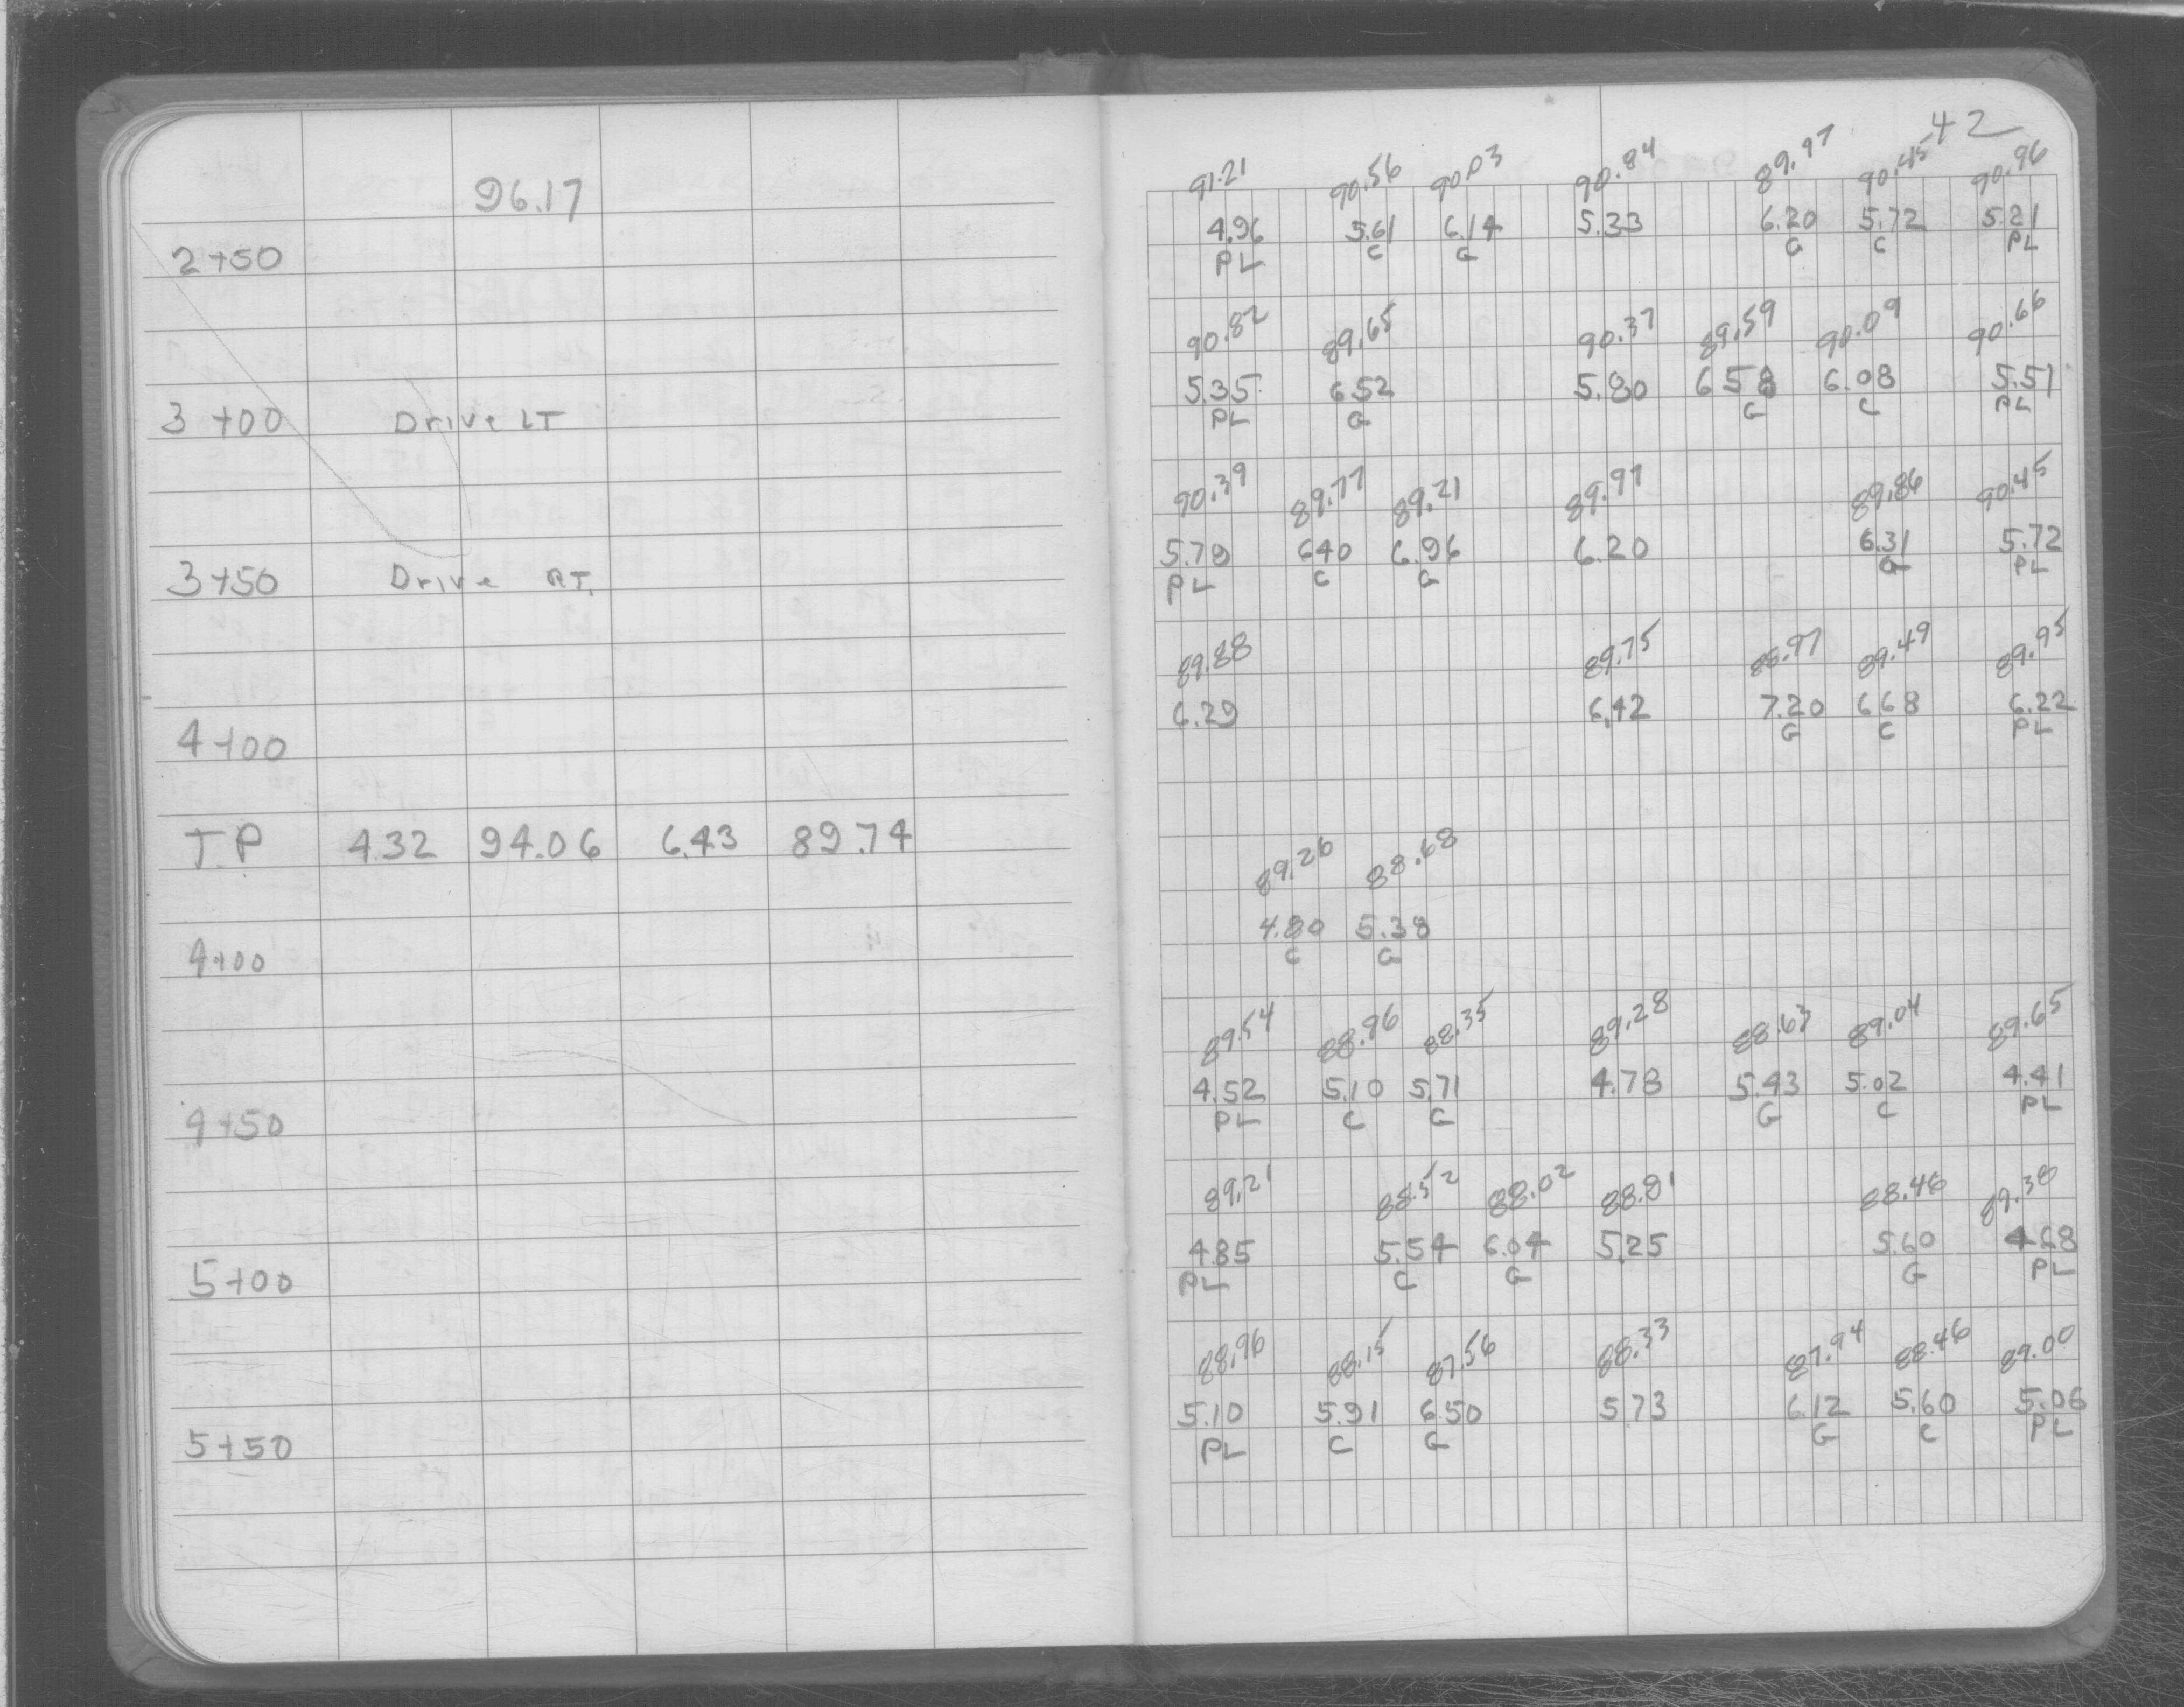 42
96.17
91.21 90.56 90.03 90.84 89.97 90.45 90.96
4.96 5.61 6.14 5.33 6.20 5.72 5.21
2+50 PL C G G C PL
90.82 89.65 90.37 89.59 90.09 90.66
5.35 6.52 5.80 6.58 6.08 5.51
3+00 Drive LT PL G G C PL
90.39 89.77 89.21 89.97 89.86 90.45
5.78 6.40 6.96 6.20 6.31 5.72
3+50 Drive RT. PL C G G PL
89.88 89.75 88.97 89.49 89.95
6.29 6.42 7.20 6.68 6.22
4+00 G C PL
T.P 4.32 94.06 6.43 89.74
89.26 88.68
4.80 5.38
4+00 C G
89.54 88.96 88.35 89.28 88.63 89.04 89.65
4.52 5.10 5.71 4.78 5.43 5.02 4.41
4+50 PL C G G C PL
89.21 88.52 88.02 88.81 88.46 89.38
4.85 5.54 6.04 5.25 5.60 4.68
5+00 PL C G G PL
88.96 88.15 87.56 88.33 87.94 88.46 89.00
5.10 5.91 6.50 5.73 6.12 5.60 5.06
5+50 PL C G G C PL